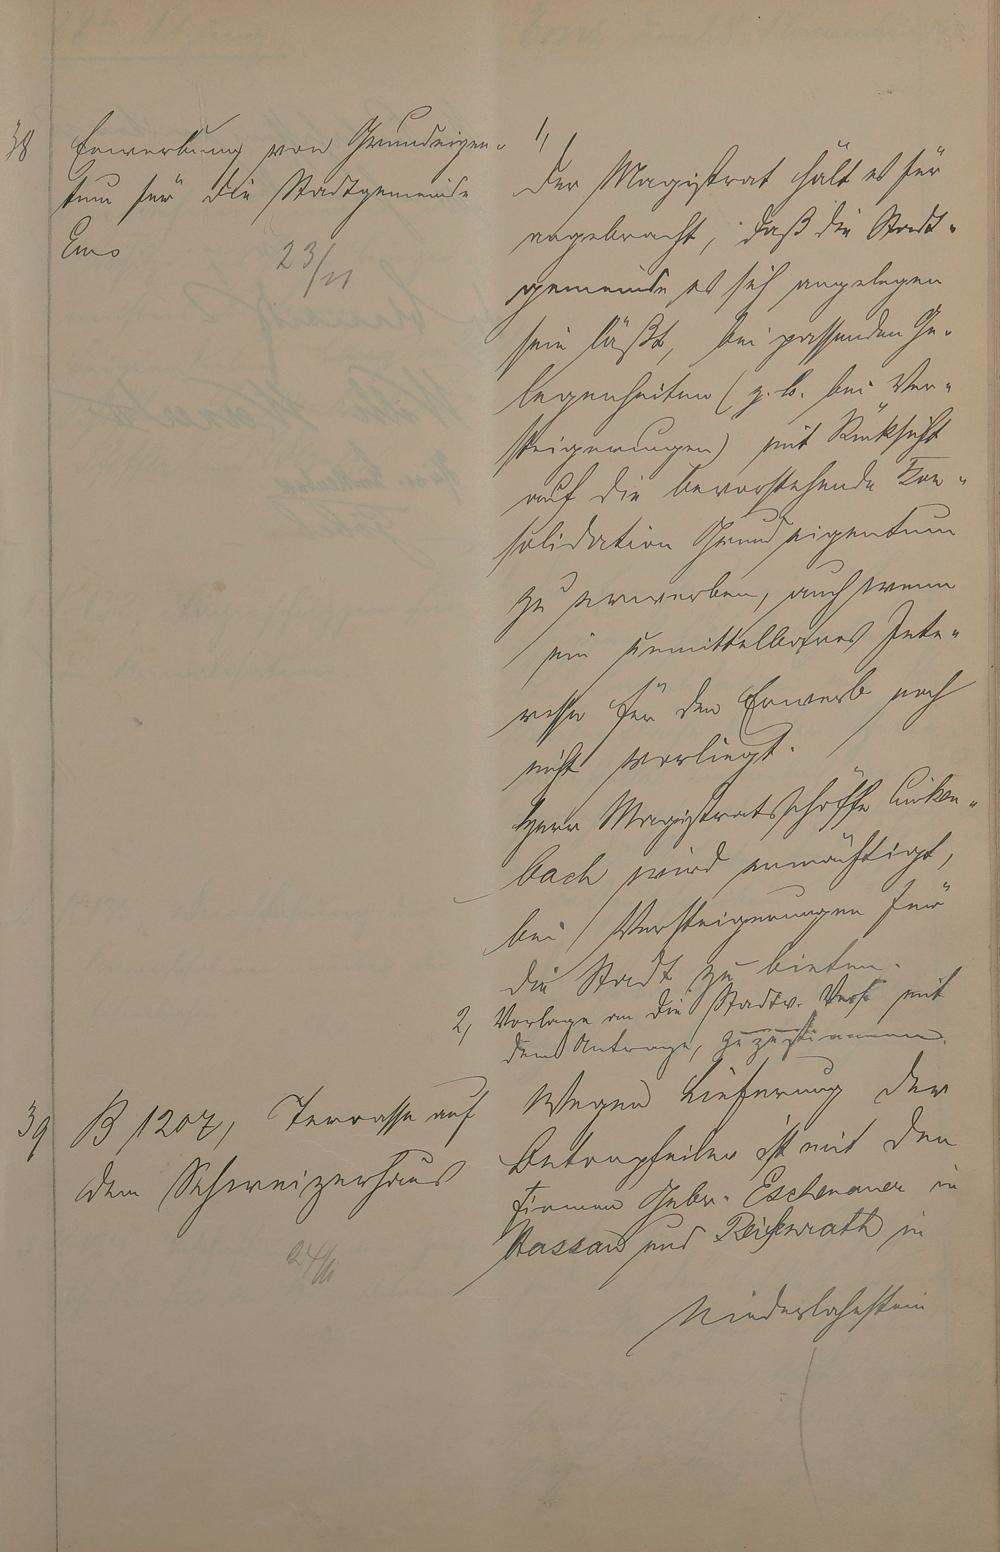 38 Erwerbung von Grundeigen-
tum für die Stadtgemeinde
Ems
23/11
1,
Der Magistrat hält es für
angebracht, daß die Stadt-
gemeinde es sich angelegen
sein läßt, bei passenden Ge-
legenheiten (z. b. bei Ver-
steigerungen) mit Rücksicht
auf die bevorstehende Kon-
solidation Grundeigentum
zu erwerben, auch wenn
ein unmittelbares Inte-
resse für den Erwerb noch
nicht vorliegt.
Herr Magistratsschöffe Linken-
bach wird ermächtigt,
bei Versteigerungen für
die Stadt zu bieten.
2, Vorlage an die Stadtv. Vers. mit
dem Antrage, zuzustimmen.
39 B 1207, Terrasse auf
dem Schweizerhaus
24/11
Wegen Lieferung der
Betonpfeiler ist mit den
Firmen Gebr. Eschenauer in
Nassau und Reichenrath in
Niederlahnstein